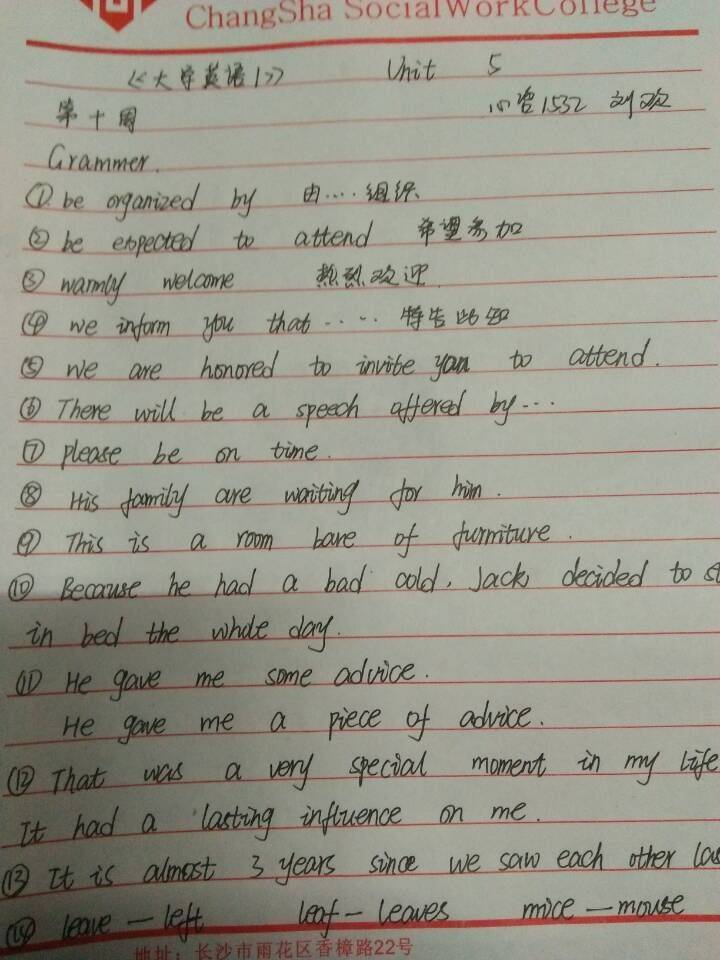 ChangSha SocialWorkCollege
《大学英语1》 Unit 5
第十周 心咨1532 刘欢
Grammer.
① be organized by 由....组织
② be expected to attend 希望参加
③ warmly welcome 热烈欢迎.
④ we inform you that ..... 特告此知
⑤ we are honored to invite you to attend.
⑥ There will be a speech offered by ...
⑦ please be on time.
⑧ His family are waiting for him.
⑨ This is a room bare of furniture.
⑩ Because he had a bad cold, Jack decided to st
in bed the whole day.
⑪ He gave me some advice.
He gave me a piece of advice.
⑫ That was a very special moment in my life
It had a lasting influence on me.
⑬ It is almost 3 years since we saw each other las
⑭ leave — left leaf — leaves mice — mouse
地址：长沙市雨花区香樟路22号